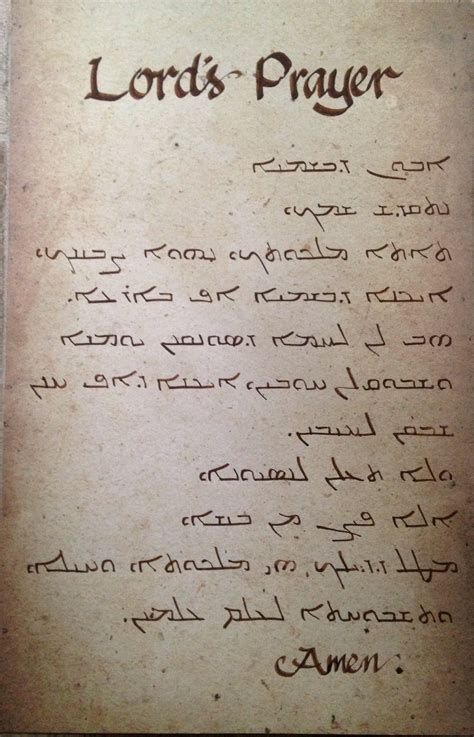 Lord's Prayer
ܐܒܘܢ ܕܒܫܡܝܐ
ܢܬܩܕܫ ܫܡܟ
ܬܐܬܐ ܡܠܟܘܬܟ ܢܗܘܐ ܨܒܝܢܟ
ܐܝܟܢܐ ܕܒܫܡܝܐ ܐܦ ܒܐܪܥܐ.
ܗܒ ܠܢ ܠܚܡܐ ܕܣܘܢܩܢܢ ܝܘܡܢܐ
ܘܫܒܘܩ ܠܢ ܚܘܒܝܢ ܐܝܟܢܐ ܕܐܦ ܚܢܢ
ܫܒܩܢ ܠܚܝܒܝܢ.
ܘܠܐ ܬܥܠܢ ܠܢܣܝܘܢܐ
ܐܠܐ ܦܨܢ ܡܢ ܒܝܫܐ
ܡܛܠ ܕܕܝܠܟ ܗܝ ܡܠܟܘܬܐ ܘܚܝܠܐ
ܘܬܫܒܘܚܬܐ ܠܥܠܡ ܥܠܡܝܢ.
Amen.